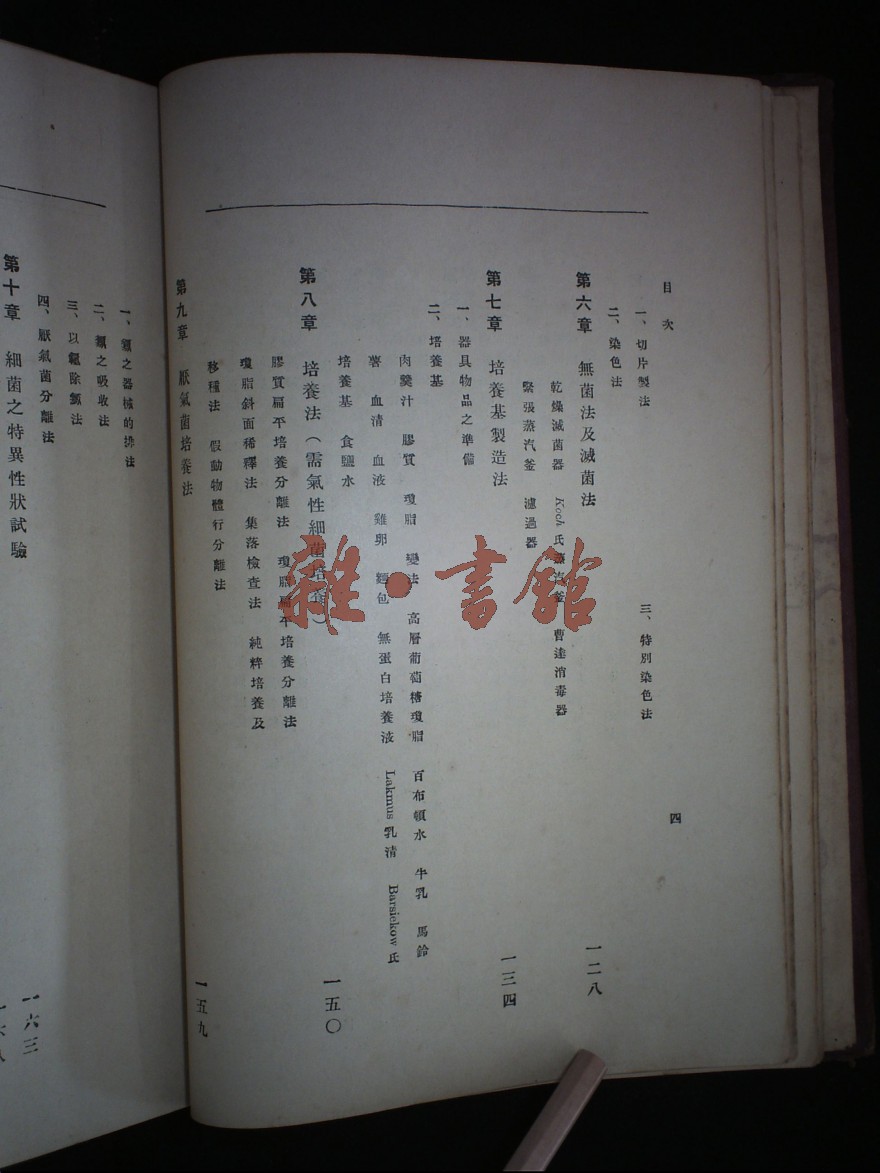 目次
四
一、切片製法
三、特別染色法
二、染色法
第六章 無菌法及滅菌法 一二八
乾燥滅菌器 Koch氏蒸汽釜 曹達消毒器
緊張蒸汽釜 濾過器
第七章 培養基製造法 一三四
一、器具物品之準備
二、培養基
肉羹汁 膠質 瓊脂 變法 高層葡萄糖瓊脂 百布頓水 牛乳 馬鈴
薯 血清 血液 雞卵 麵包 無蛋白培養液 Lakmus乳清 Barsiekow氏
培養基 食鹽水
第八章 培養法(需氣性細菌培養) 一五〇
膠質扁平培養分離法 瓊脂扁平培養分離法
瓊脂斜面稀釋法 集落檢查法 純粹培養及
移種法 假動物體行分離法
第九章 厭氣菌培養法 一五九
一、 之器械的排法
二、 之吸收法
三、以 除 法
四、厭氣菌分離法
第十章 細菌之特異性狀試驗
一六三
雜·書館